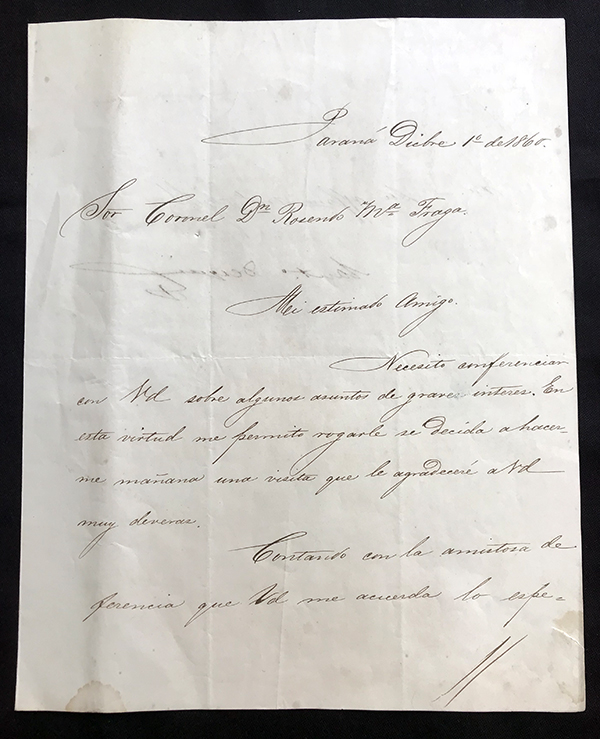 Paraná Dicbre 1º de 1860.
Sor Coronel Dn Rosendo Ma Fraga.
Mi estimado Amigo.
Necesito conferenciar
con Vd sobre algunos asuntos de grave interes. En
esta virtud me permito rogarle se decida a hacer-
me mañana una visita que le agradeceré a Vd
muy deveras.
Contando con la amistosa de
ferencia que Vd me acuerda lo espe-